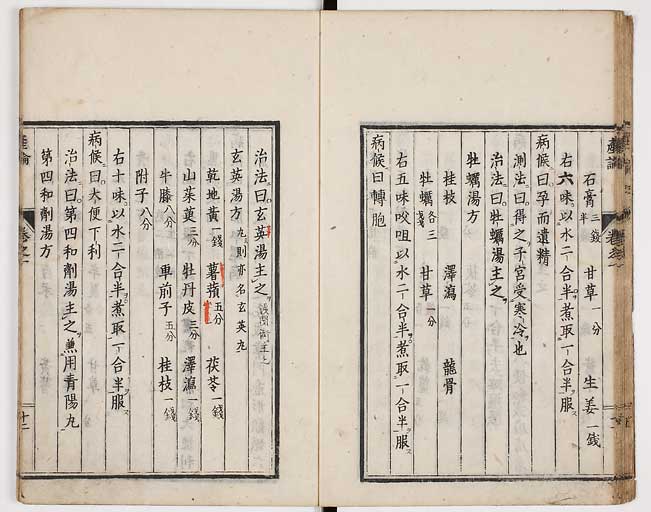 石膏三錢半 甘草一分 生姜一錢
右六味以水二合半煮取一合半服
病候曰孕而遺精
測法曰得之子宮受寒冷也
治法曰牡蠣湯主之
牡蠣湯方
桂枝 澤瀉 龍骨
牡蠣各三錢 甘草一分
右五味㕮咀以水二合半煮取一合半服
病候曰轉胞
治法曰玄英湯主之
玄英湯方丸則亦名玄英丸
乾地黃一錢 薯蕷五分 茯苓一錢
山茱萸三分 牡丹皮三分 澤瀉一錢
牛膝八分 車前子五分 桂枝一錢
附子八分
右十味以水二合半煮取一合半服
病候曰大便下利
治法曰第四和劑湯主之兼用青陽丸
第四和劑湯方
產論 卷之一 十二